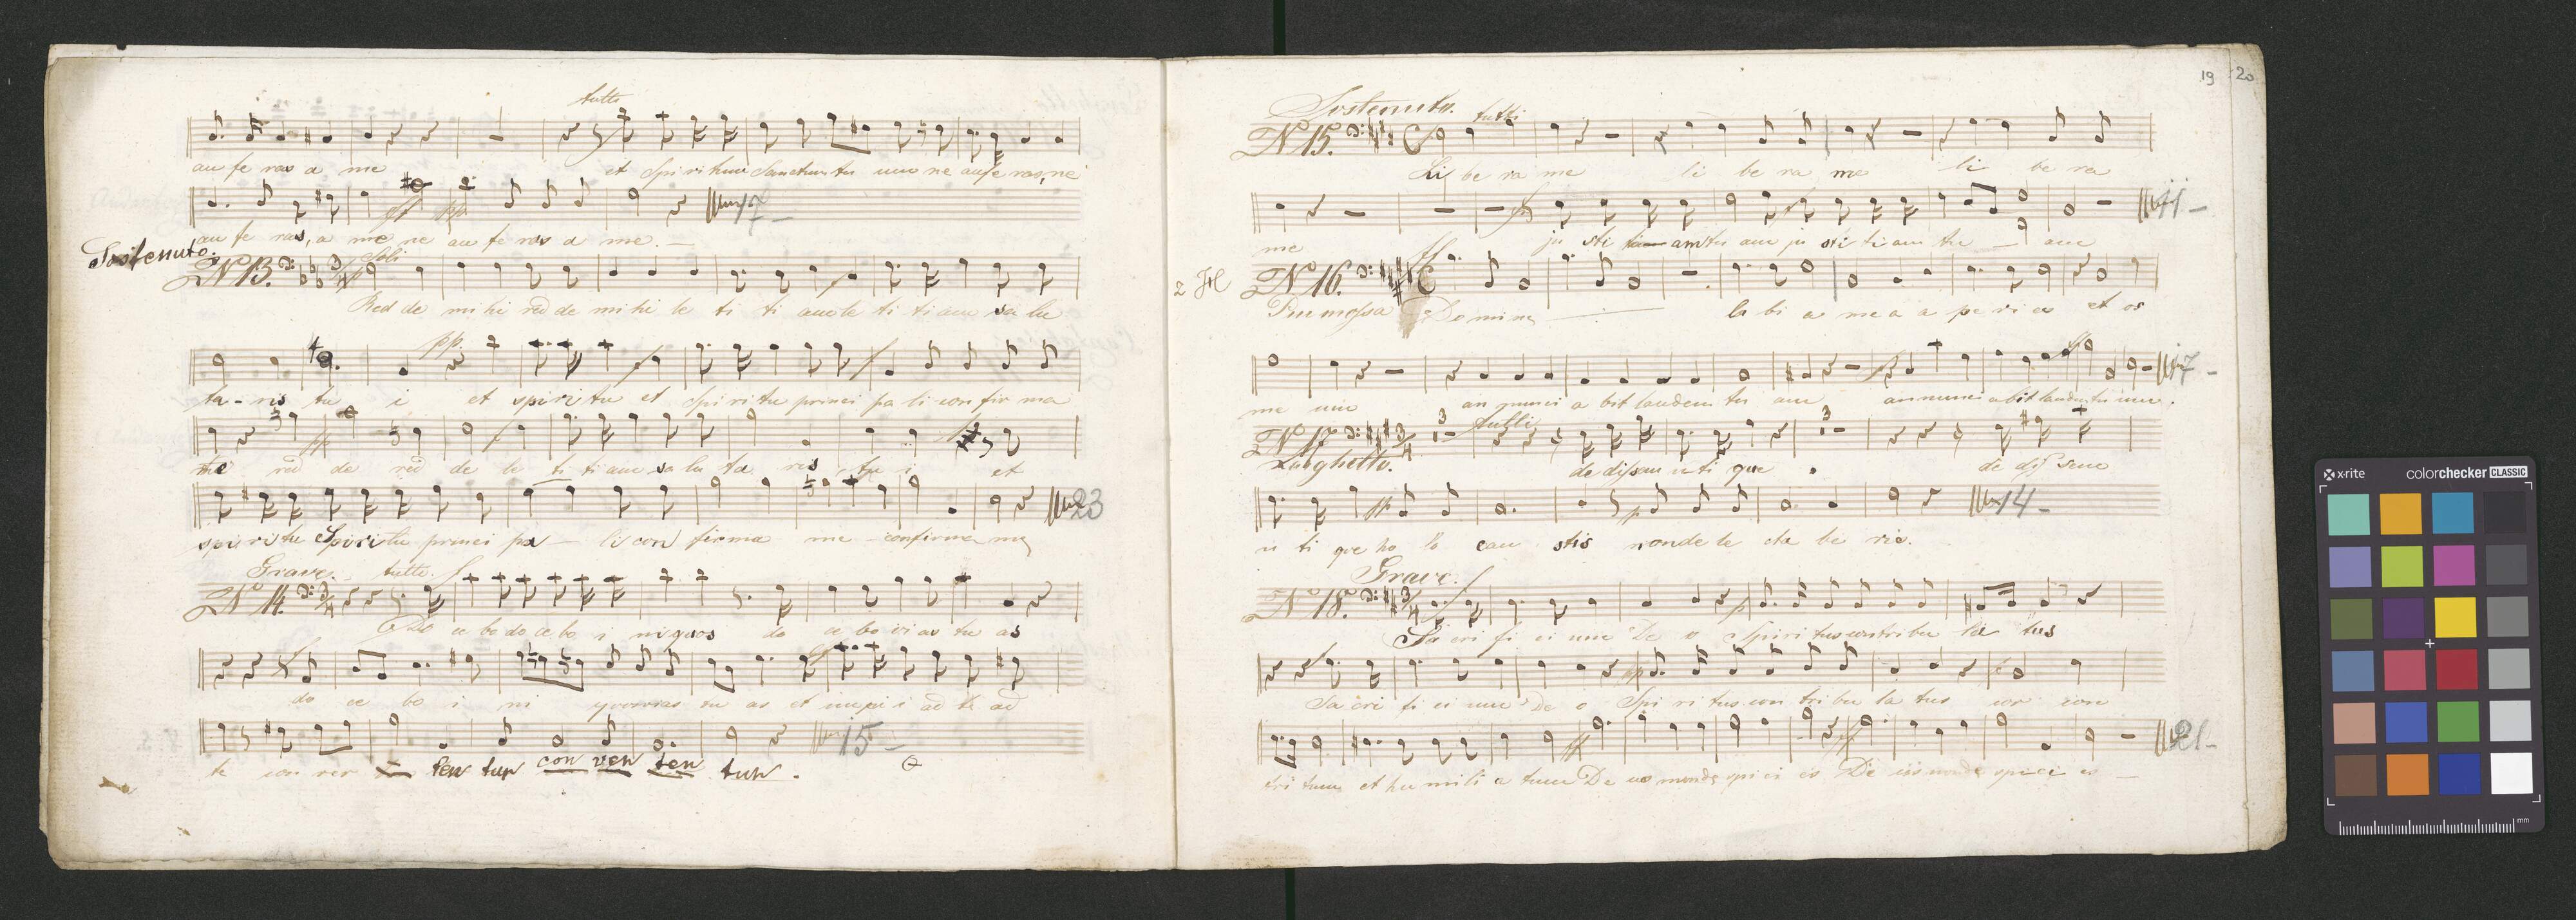 tutti
au fe ras a me et Spiritum Sanctum tu um ne aufe ras, ne
ff pp 17
au fe ras, a me ne au fe ras a me.
Sostenuto.
Soli
No 13.
Red de mi hi red de mi hi le ti ti am le ti ti am sa lu
pp.
ta - ris tu i et spiri tu et spi ri tu princi pa li con fir ma
pp
me red de red de le ti ti am sa lu ta ris, tu i et
23
spi ri tu Spiri tu princi pa - li con firma me confirma me
Grave. tutti. f
No 14. 3/4
Do ce bo do ce bo i niquos do ce bo vi as tu as
do ce bo i ni quos vias tu as et impi i ad te ad
15
te con ver ten tur con ver ten tur.
19 20
Sostenuto.
tutti
No 15.
Li be ra me li be ra me li be ra
11
me ju sti ti am tu am ju sti ti am tu - am
2 H
ff
No 16.
Piu mossa Domine la bi a me a a pe ri es et os
17
me um an nunci a bit laudem tu am annunci a bit laudem tu am.
tutti
No 17. 3/4 3 3
Larghetto. dedissem u ti que de dissem
pp p 14
u ti que ho lo cau stis non de le cta be ris.
Grave.
No 18. 3/4
Sa cri fi ci um De o Spiri tus contribu la tus
pp
Sa cri fi ci um De o Spi ri tus con tri bu la tus cor con
ff 21
tri tum et hu mili a tum De us non de spi ci es De us non de spi ci es
x-rite colorchecker CLASSIC
mm